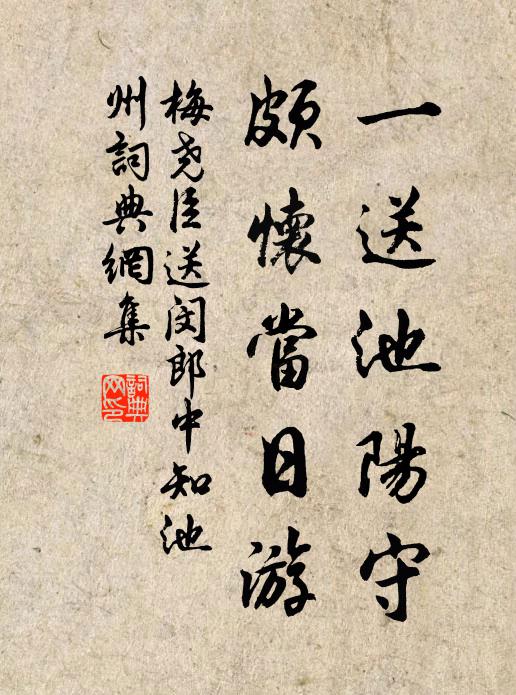 一送池陽守
頗懷當日游
梅尧臣送闵郎中知池
州詞典網集
詞典
网印